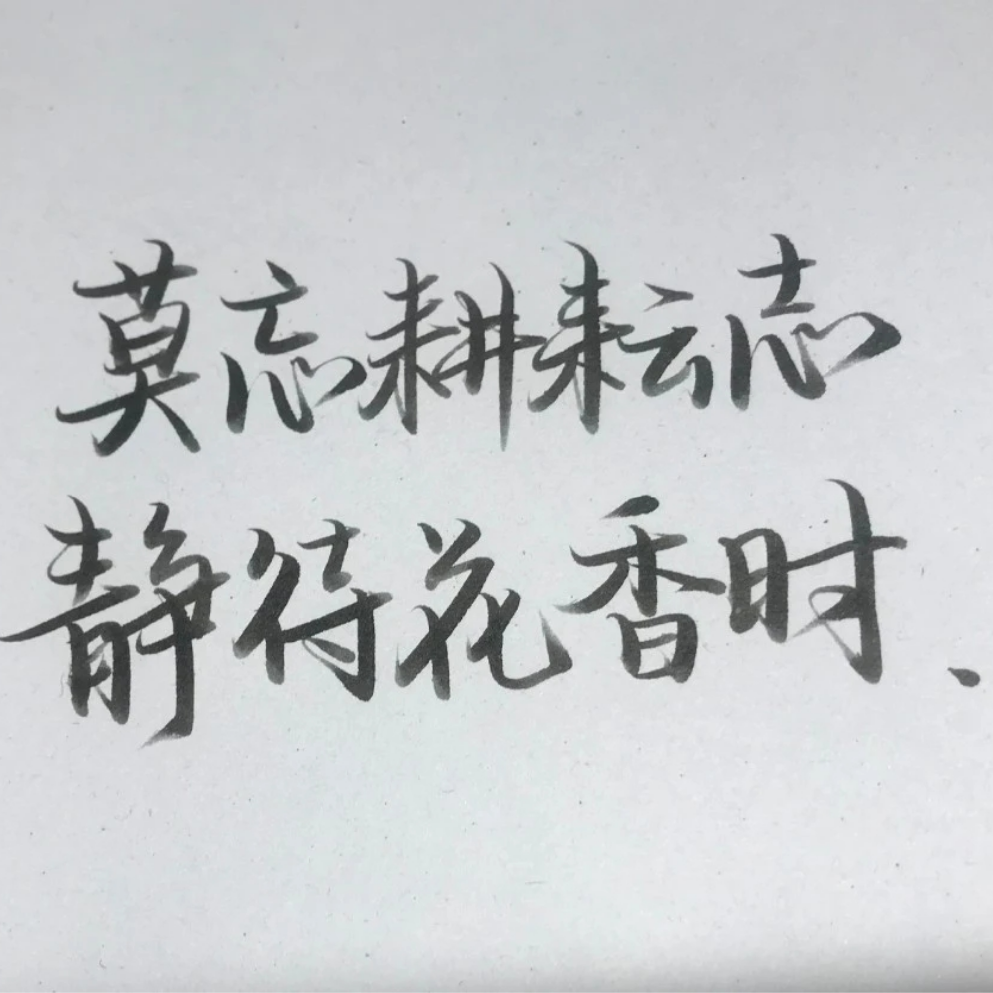 莫忘耕耘志
静待花香时、